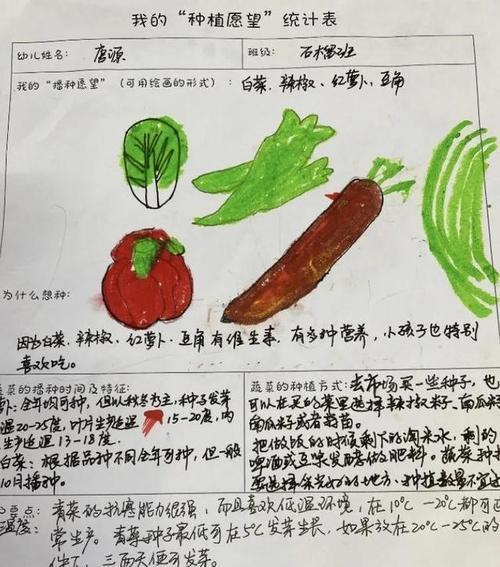 我的“种植愿望”统计表
幼儿姓名: 唐源 班级: 石榴班
我的“播种愿望”(可用绘画的形式): 白菜、辣椒、红萝卜、豆角
为什么想种:
因为白菜、辣椒、红萝卜、豆角有维生素、有多种营养,小孩子也特别
喜欢吃。
蔬菜的播种时间及特征:
卜:全年均可种,但以秋冬为主,种子发芽
温20-25度,叶片生长适温15-20度,肉
生长适温13-18度.
白菜:根据品种不同全年可种,但一般
10月播种。
蔬菜的种植方式: 去市场买一些种子,也
可以在买的菜里选择辣椒籽、南瓜籽
南瓜籽或者蒜苗
把做饭的时候剩下的淘米水,剩的
啤酒或豆浆发酵做肥料。蔬菜种
的地方,种植数量不宜
意点: 青菜的抗寒能力很强,而且喜欢低温环境,在10℃-20℃都可正
温度: 常生产。青菜种子最低可在5℃发芽生长,如果放在20℃-25℃的
件下,三两天便可发芽。